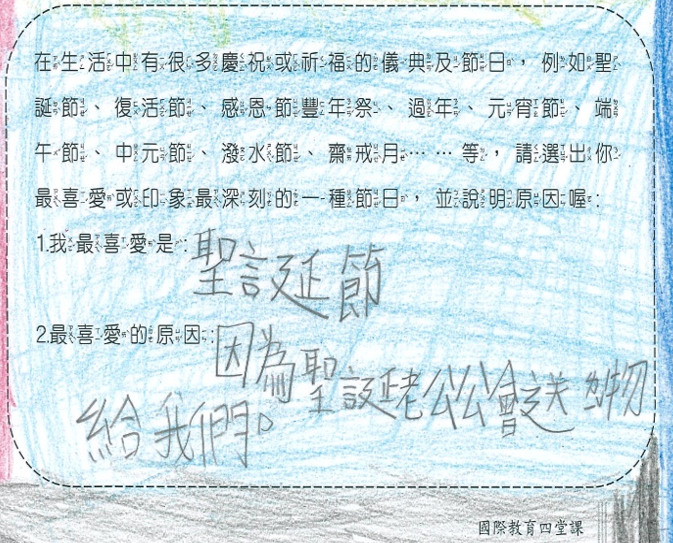 在生活中有很多慶祝或祈福的儀典及節日，例如聖
誕節、復活節、感恩節豐年祭、過年、元宵節、端
午節、中元節、潑水節、齋戒月……等，請選出你
最喜愛或印象最深刻的一種節日，並說明原因喔：
1.我最喜愛是：聖誕節
2.最喜愛的原因：因為聖誕老公公會送物
給我們。
國際教育四堂課